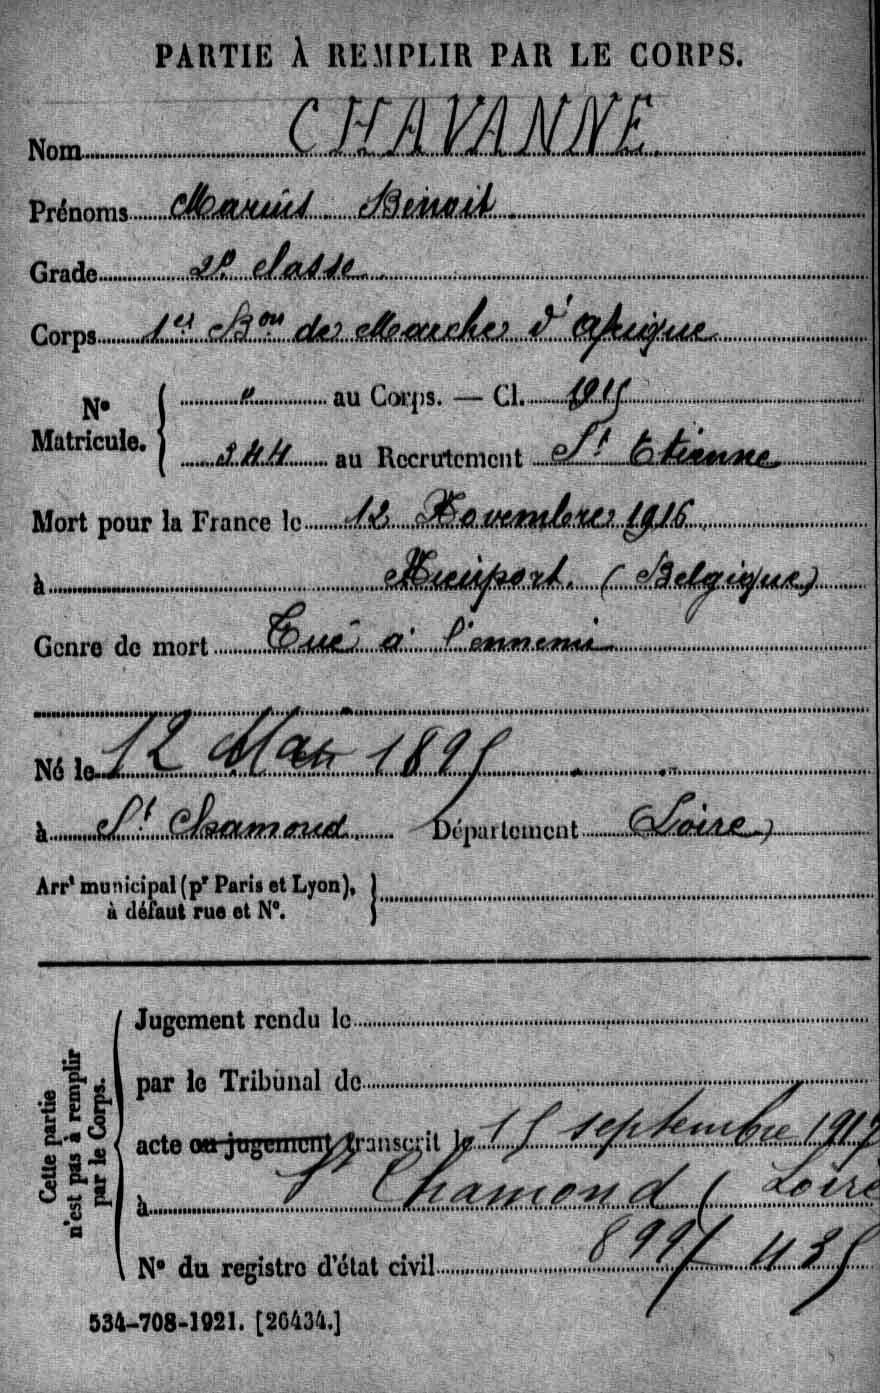 PARTIE À REMPLIR PAR LE CORPS.
Nom CHAVANNE
Prénoms Marius Benoit
Grade 2e classe
Corps 1er Bon de Marche d'Afrique
No Matricule. " au Corps. — Cl. 1915
344 au Recrutement St Etienne
Mort pour la France le 12 Novembre 1916
à Nieuport (Belgique)
Genre de mort Tué à l'ennemi
Né le 12 Mai 1895
à St Chamond Département Loire
Arrt municipal (pr Paris et Lyon),
à défaut rue et No.
Cette partie
n'est pas à remplir
par le Corps.
Jugement rendu le
par le Tribunal de
acte ou jugement transcrit le 15 septembre 1917
à St Chamond (Loire
No du registre d'état civil 899/435
534-708-1921. [26434.]